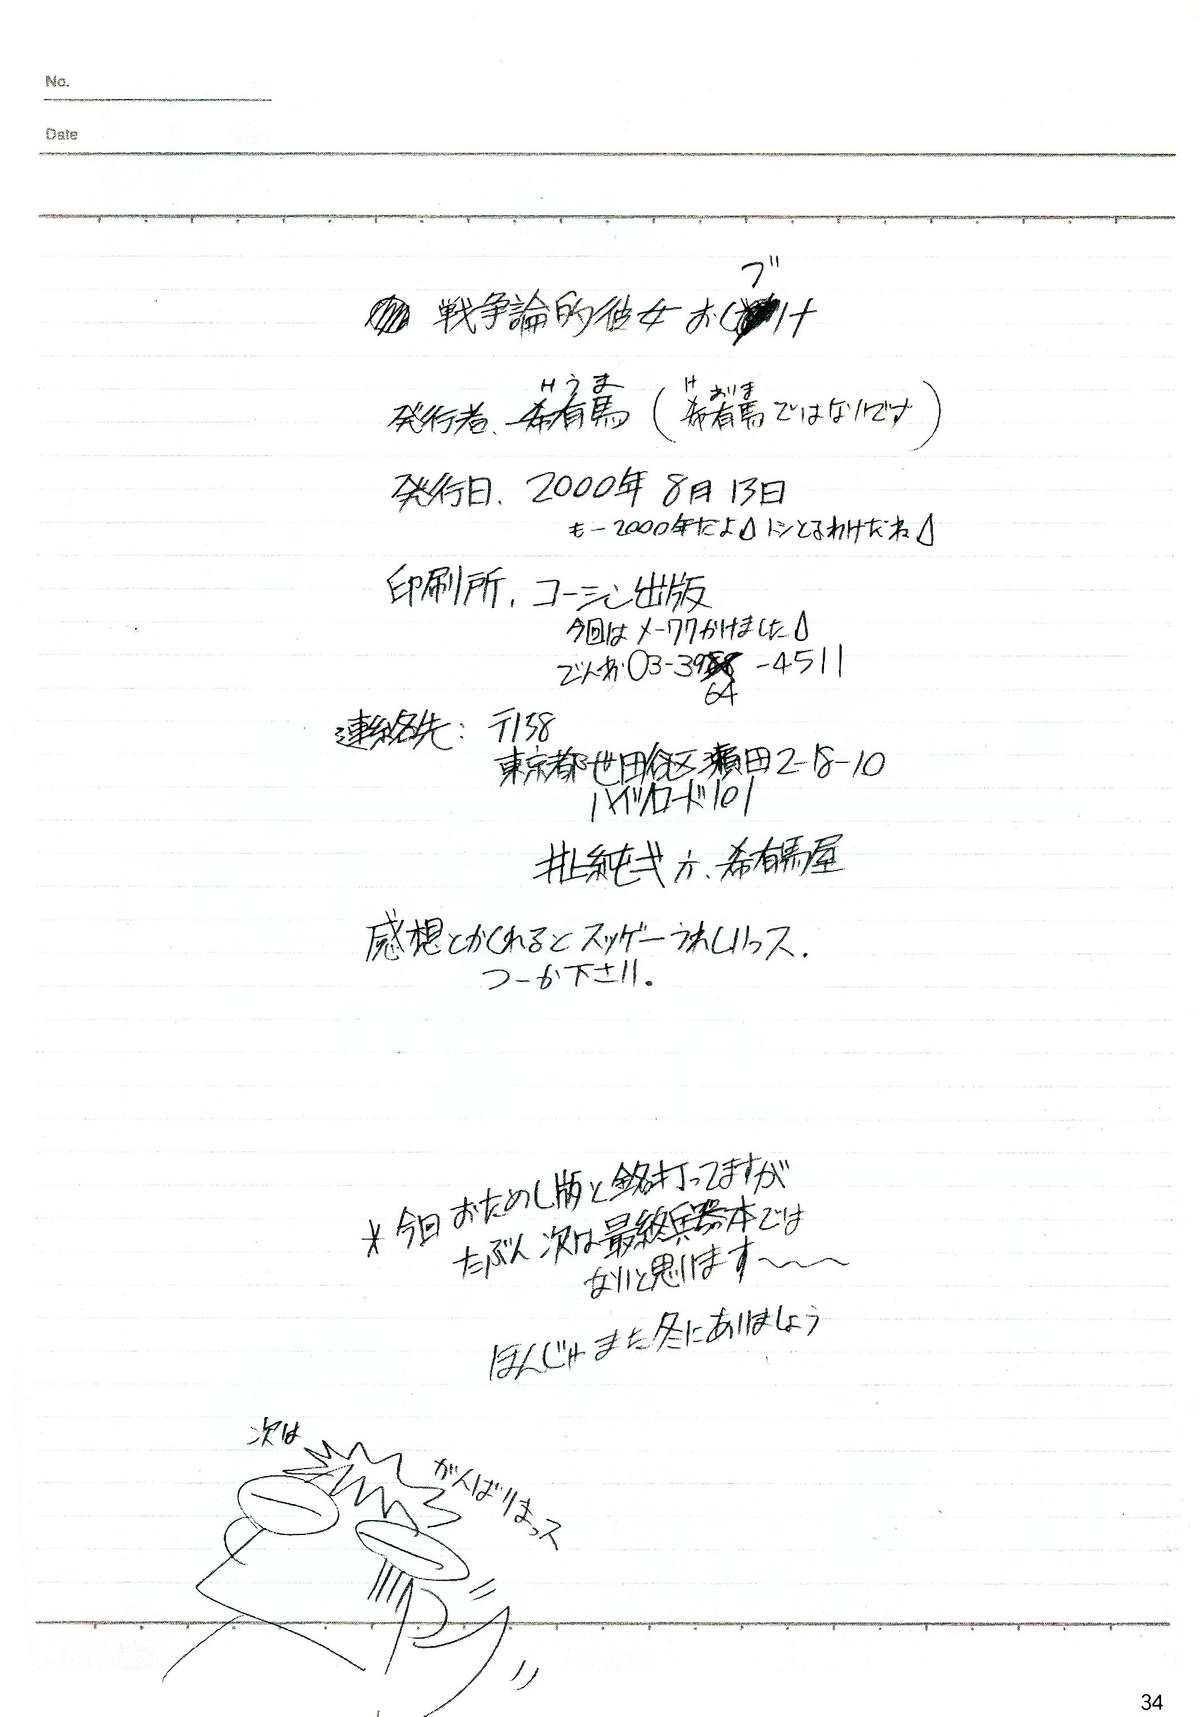 No.
Date
戦争論的彼女 おじブけ
発行者、希有馬(希有馬ではないです)
発行日、2000年 8月 13日
もー2000年だよ トシとるわけだね
印刷所、コーシン出版
今回はメーワクかけました
でんわ 03-3964-4511
連絡先:〒158
東京都世田谷区瀬田2-18-10
ハイツロード101
井上純弌 方、希有馬屋
感想とかくれるとスッゲーうれしいっス.
つーか下さい。
*今回 おためし版と銘打ってますが
たぶん 次は最終兵器本では
ないと思います〜〜〜
ほんじゃ また 冬にあいましょう
次は
がんばりまっス
34